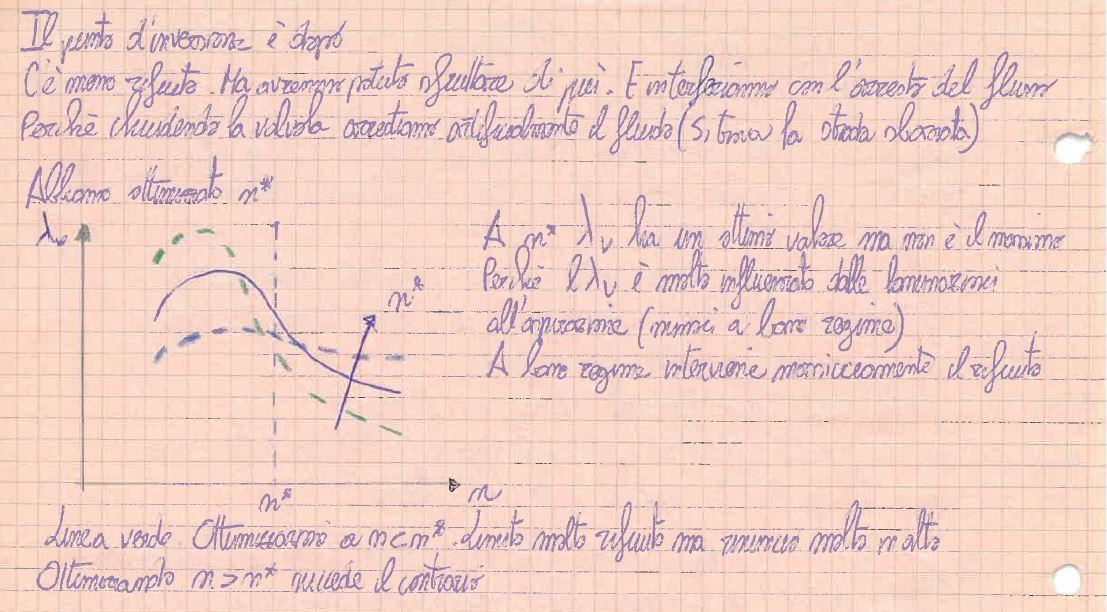 Il punto d'inversione è dopo
C'è meno rifiuto. Ma avremmo potuto sfruttare di più. E interferiamo con l'arresto del fluido
Perché chiudendo la valvola arrestiamo artificialmente il fluido (Si trova la strada sbarrata)
Abbiamo ottimizzato n*
λv
A n* λv ha un ottimo valore ma non è il massimo
Perché l λv è molto influenzato dalle laminazioni
n*
all'aspirazione (minori a basso regime)
A basso regime interviene massicciamente il rifiuto
n
n*
Linea verde. Ottimizziamo a n<n*. Limito molto rifiuto ma rinuncio molto in alto
Ottimizzando n>n* succede il contrario